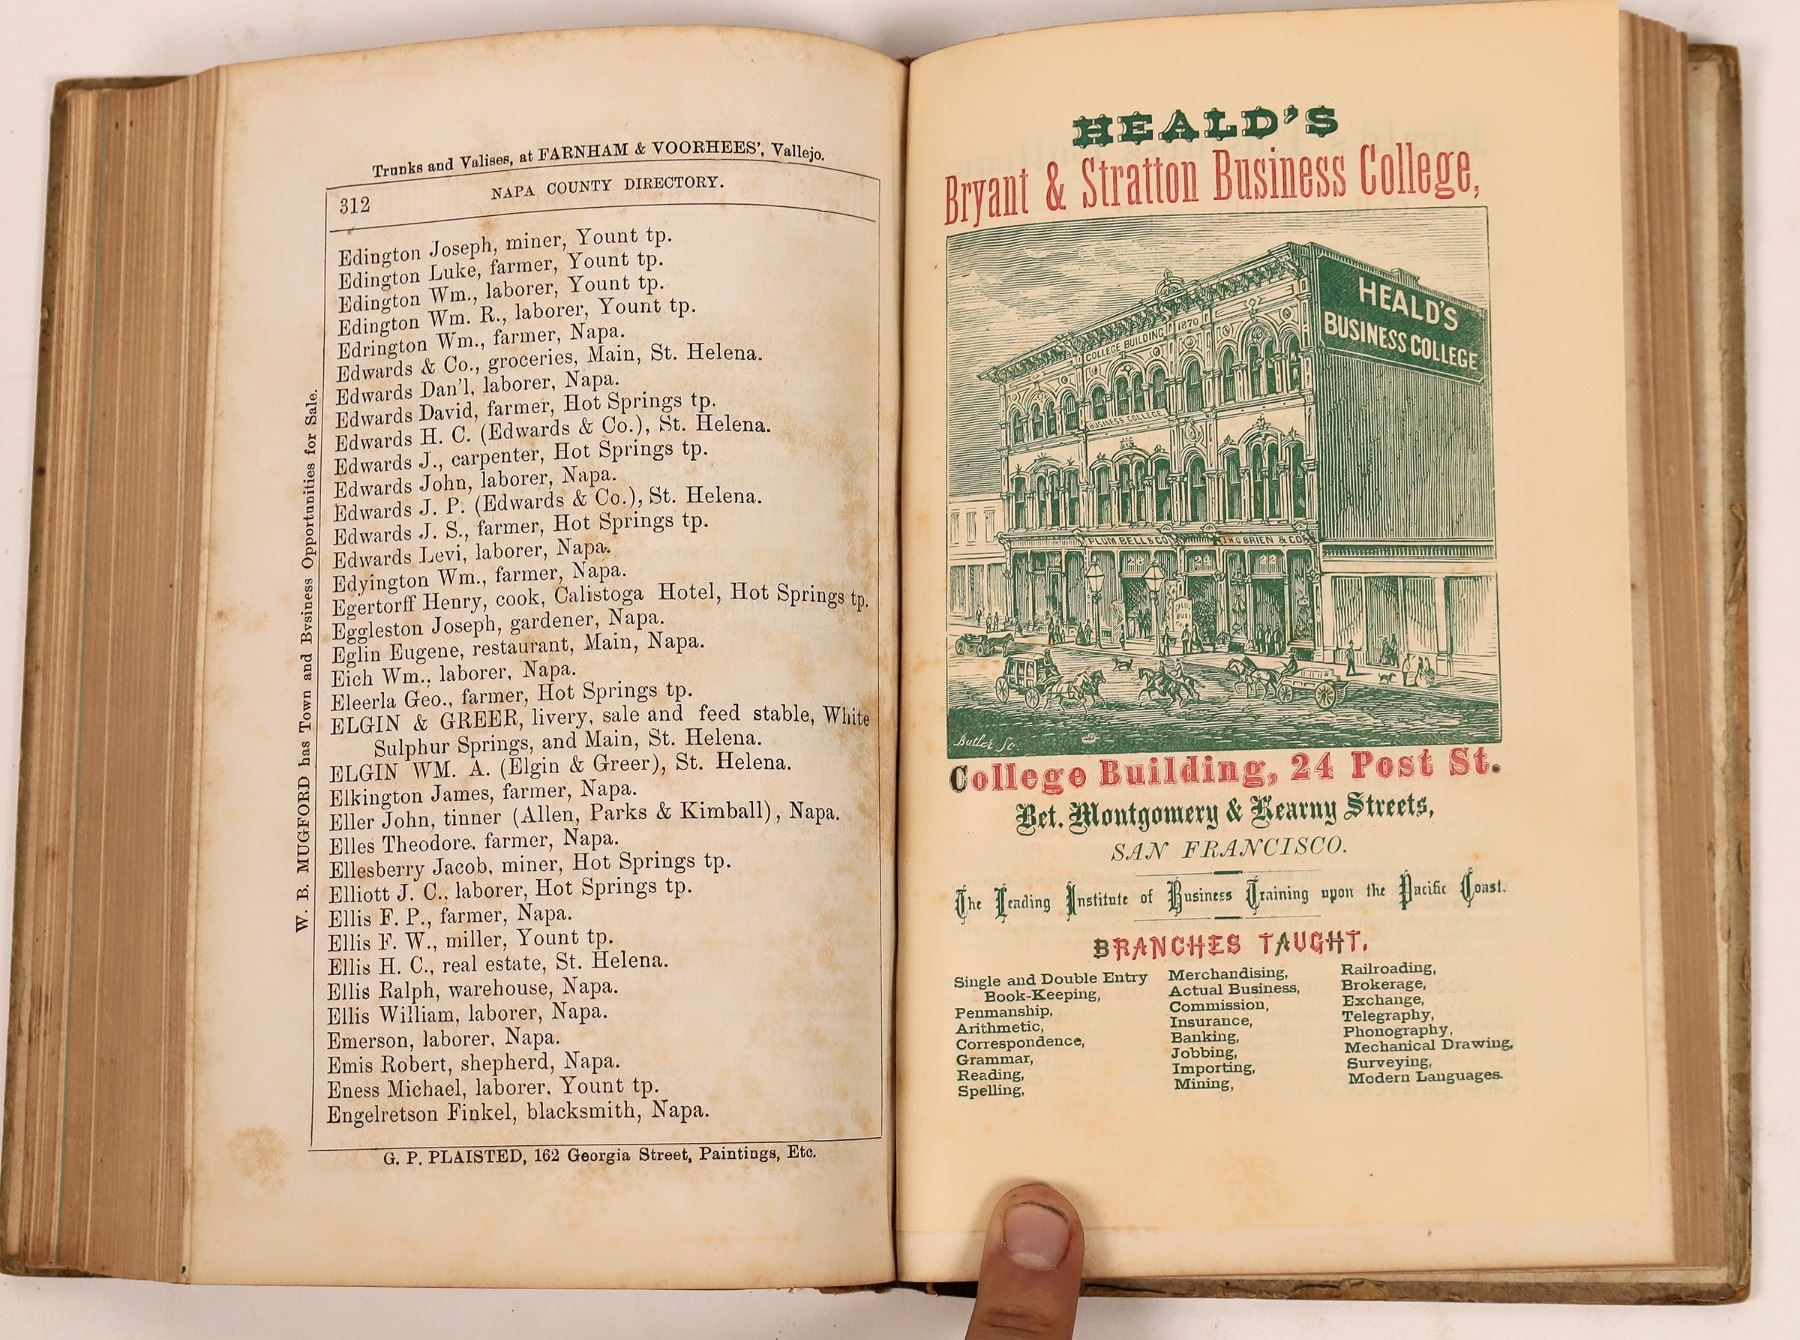 Trunks and Valises, at FARNHAM & VOORHEES', Vallejo.
312 NAPA COUNTY DIRECTORY.
Edington Joseph, miner, Yount tp.
Edington Luke, farmer, Yount tp.
Edington Wm., laborer, Yount tp.
Edington Wm. R., laborer, Yount tp.
Edrington Wm., farmer, Napa.
Edwards & Co., groceries, Main, St. Helena.
Edwards Dan'l, laborer, Napa.
Edwards David, farmer, Hot Springs tp.
Edwards H. C. (Edwards & Co.), St. Helena.
Edwards J., carpenter, Hot Springs tp.
Edwards John, laborer, Napa.
Edwards J. P. (Edwards & Co.), St. Helena.
Edwards J. S., farmer, Hot Springs tp.
Edwards Levi, laborer, Napa.
Edyington Wm., farmer, Napa.
Egertorff Henry, cook, Calistoga Hotel, Hot Springs tp.
Eggleston Joseph, gardener, Napa.
Eglin Eugene, restaurant, Main, Napa.
Eich Wm., laborer, Napa.
Eleerla Geo., farmer, Hot Springs tp.
ELGIN & GREER, livery, sale and feed stable, White
Sulphur Springs, and Main, St. Helena.
ELGIN WM. A. (Elgin & Greer), St. Helena.
Elkington James, farmer, Napa.
Eller John, tinner (Allen, Parks & Kimball), Napa.
Elles Theodore, farmer, Napa.
Ellesberry Jacob, miner, Hot Springs tp.
Elliott J. C., laborer, Hot Springs tp.
Ellis F. P., farmer, Napa.
Ellis F. W., miller, Yount tp.
Ellis H. C., real estate, St. Helena.
Ellis Ralph, warehouse, Napa.
Ellis William, laborer, Napa.
Emerson, laborer, Napa.
Emis Robert, shepherd, Napa.
Eness Michael, laborer, Yount tp.
Engelretson Finkel, blacksmith, Napa.
G. P. PLAISTED, 162 Georgia Street, Paintings, Etc.
W. B. MUGFORD has Town and Bvsiness Opportunities for Sale.
HEALD'S
Bryant & Stratton Business College,
HEALD'S
BUSINESS COLLEGE
COLLEGE BUILDING 1870
BUSINESS COLLEGE
PLUM BELL & CO
O'BRIEN & CO
24
22
Butler Sc.
College Building, 24 Post St.
Bet. Montgomery & Kearny Streets,
SAN FRANCISCO.
The Leading Institute of Business Training upon the Pacific Coast.
BRANCHES TAUGHT.
Single and Double Entry
Book-Keeping,
Penmanship,
Arithmetic,
Correspondence,
Grammar,
Reading,
Spelling,
Merchandising,
Actual Business,
Commission,
Insurance,
Banking,
Jobbing,
Importing,
Mining,
Railroading,
Brokerage,
Exchange,
Telegraphy,
Phonography,
Mechanical Drawing,
Surveying,
Modern Languages.